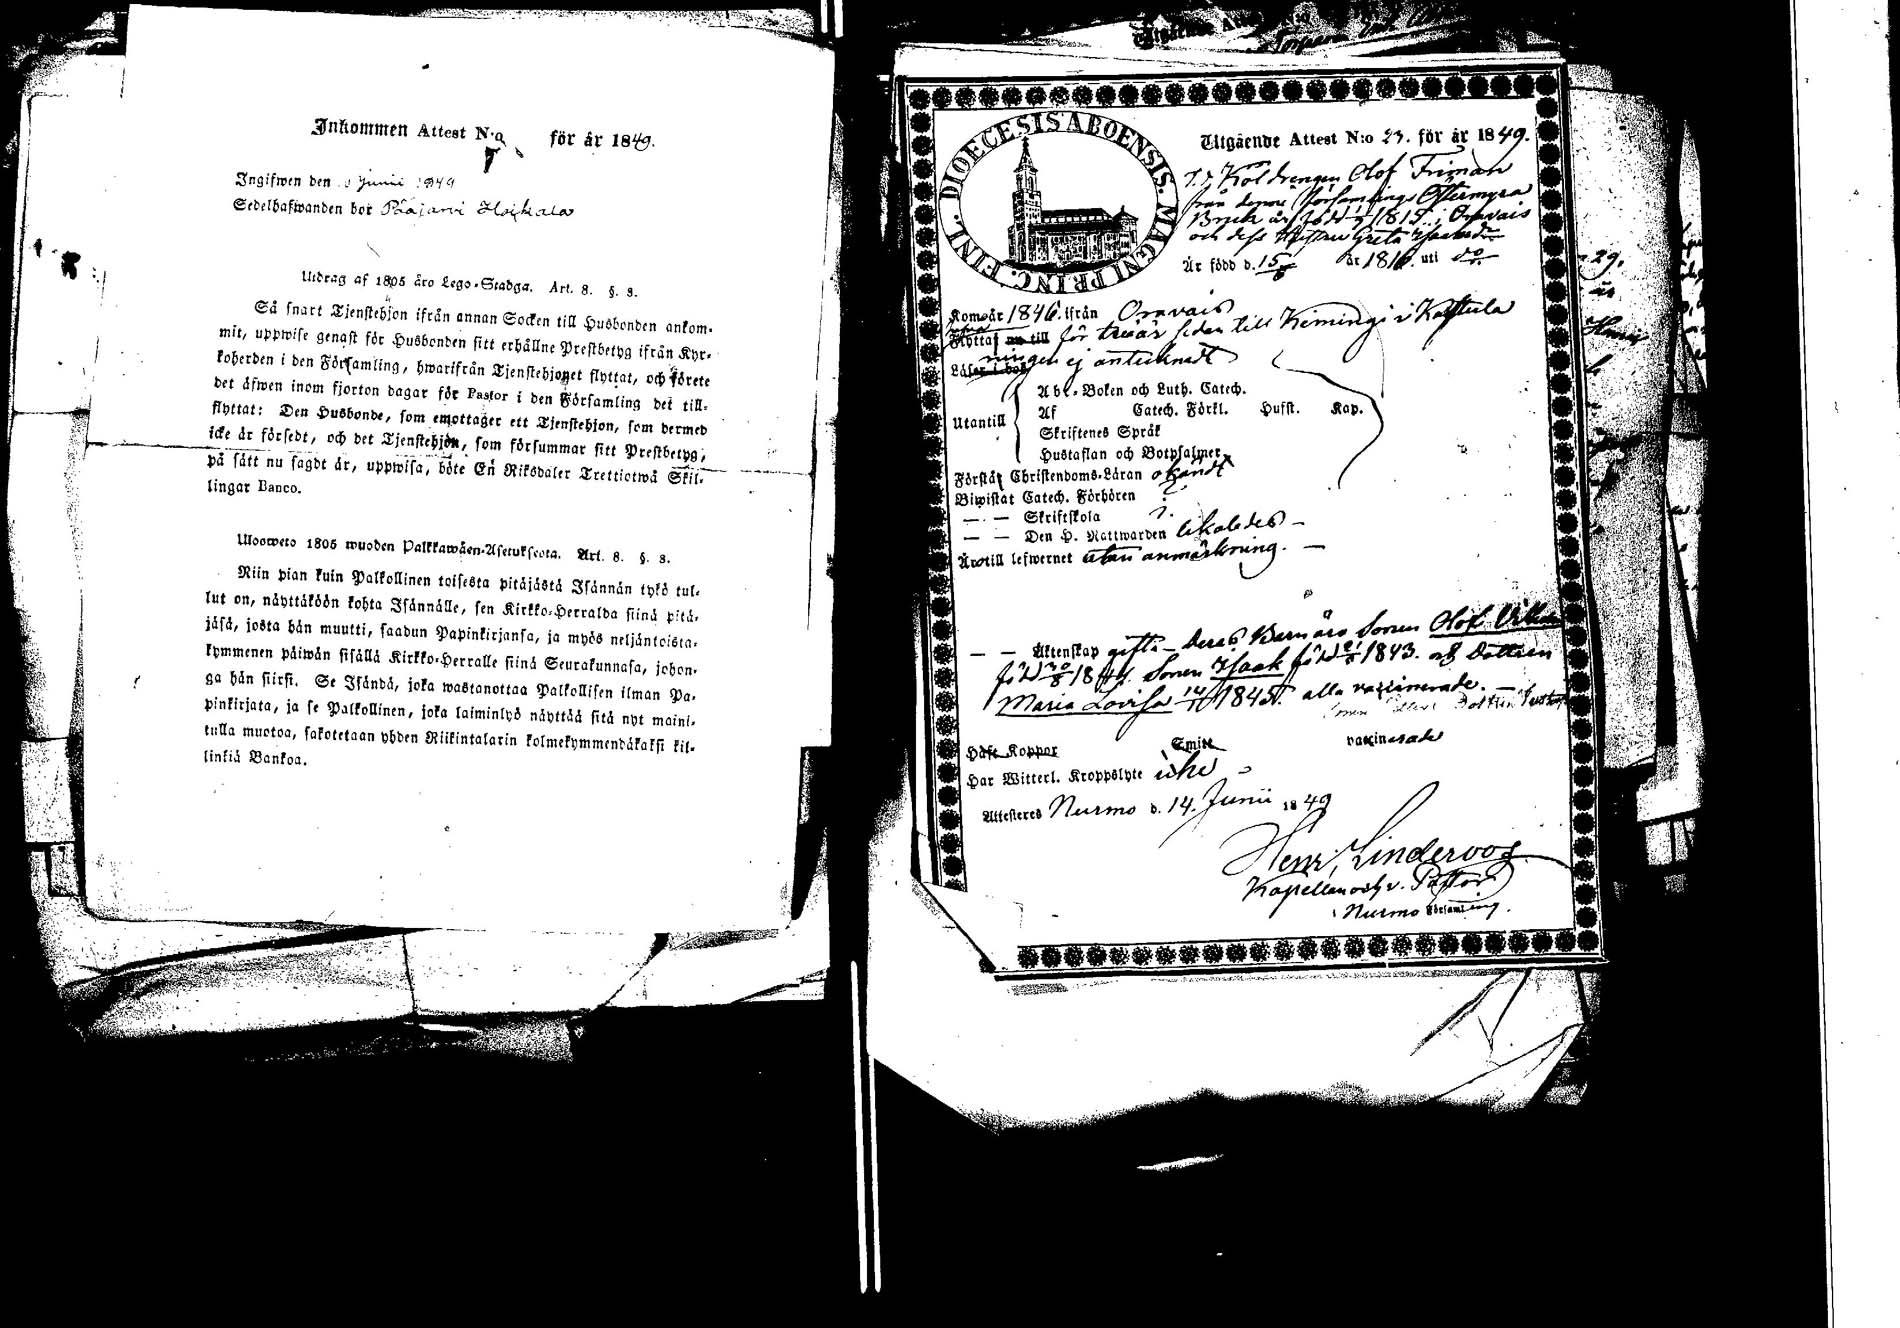 Inkommen Attest N:o för år 1849.
Ingifwen den Junii 1849
Sedelhafwanden bor Pääjärvi Hoikala
Utdrag af 1805 åro Lego-Stadga. Art. 8. §. 8.
Så snart Tjenstehjon ifrån annan Socken till Husbonden ankom-
mit, uppwise genast för Husbonden sitt erhållne Prestbetyg ifrån Kyr-
koherden i den Församling, hwarifrån Tjenstehjonet flyttat, och förete
det äfwen inom fjorton dagar för Pastor i den Församling det till-
flyttat: Den Husbonde, som emottager ett Tjenstehjon, som dermed
icke är försedt, och det Tjenstehjon, som försummar sitt Prestbetyg,
på sätt nu sagdt är, uppwisa, böte En Riksdaler Trettiotwå Skil-
lingar Banco.
Uloosweto 1805 wuoden Palkkawäen-Asetuksesta. Art. 8. §. 8.
Niin pian kuin Palkollinen toisesta pitäjästä Isännän tykö tul-
lut on, näyttäköön kohta Isännälle, sen Kirkko-Herralda siinä pitä-
jäsä, josta hän muutti, saadun Papinkirjansa, ja myös neljäntoista-
kymmenen päiwän sisällä Kirkko-Herralle siinä Seurakunnasa, johon-
ga hän siirsi. Se Isändä, joka wastanottaa Palkollisen ilman Pa-
pinkirjata, ja se Palkollinen, joka laiminlyö näyttää sitä nyt maini-
tulla muotoa, sakotetaan yhden Riikintalarin kolmekymmendäkaksi kil-
linkiä Bankoa.
DIOECESIS ABOENSIS. MAGNI PRINC. FINL.
Utgående Attest N:o 23. för år 1849.
Koldrengen Olof Friman
från denna Församlings Östermyra
Bruk är född 1815 i Oravais
och dess Hustru Greta
Är född d. 15 år 181 uti do
Kom år 1846. ifrån Oravais
Flyttat nu till för tre år sedan till Kimingi i Karstula
Läser i bok ningen ej antecknadt
Abc-Boken och Luth. Catech.
Utantill Af Catech. Förkl. Hufst. Kap.
Skriftenes Språk
Hustaflan och Botpsalmer
Förstår Christendoms-Läran okändt
Biwistat Catech. Förhören
— — Skriftskola
— — Den H. Nattwarden likaledes —
Är till lefwernet utan anmärkning. —
— — Äktenskap gifta — Deras Barn äro Sonen Olof
född Sonen Isaak född 1843. och Dottren
Maria Lovisa 1845. alla vaccinerade. —
vaccinerade
Haft Koppor Smitt
Har Witterl. Kroppslyte icke
Attesteras Nurmo d. 14. Junii 1849
Henr. Linderoos
Kapellan och v. Pastor
i Nurmo Församling.